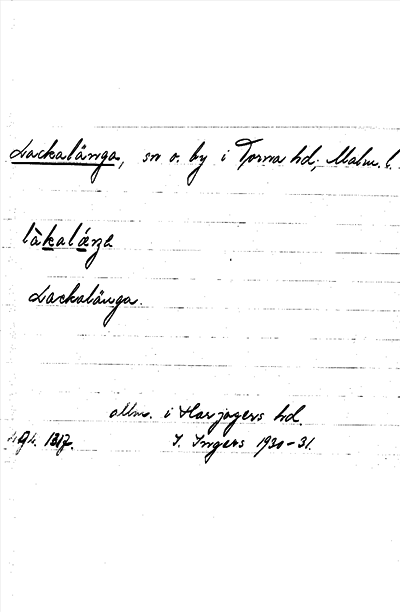 Lackalänga, sn o. by i Torna hd, Malm. l.
làkalǽŋ
Lackalänga.
allm. i Harjagers hd.
I. Ingers 1930-31.